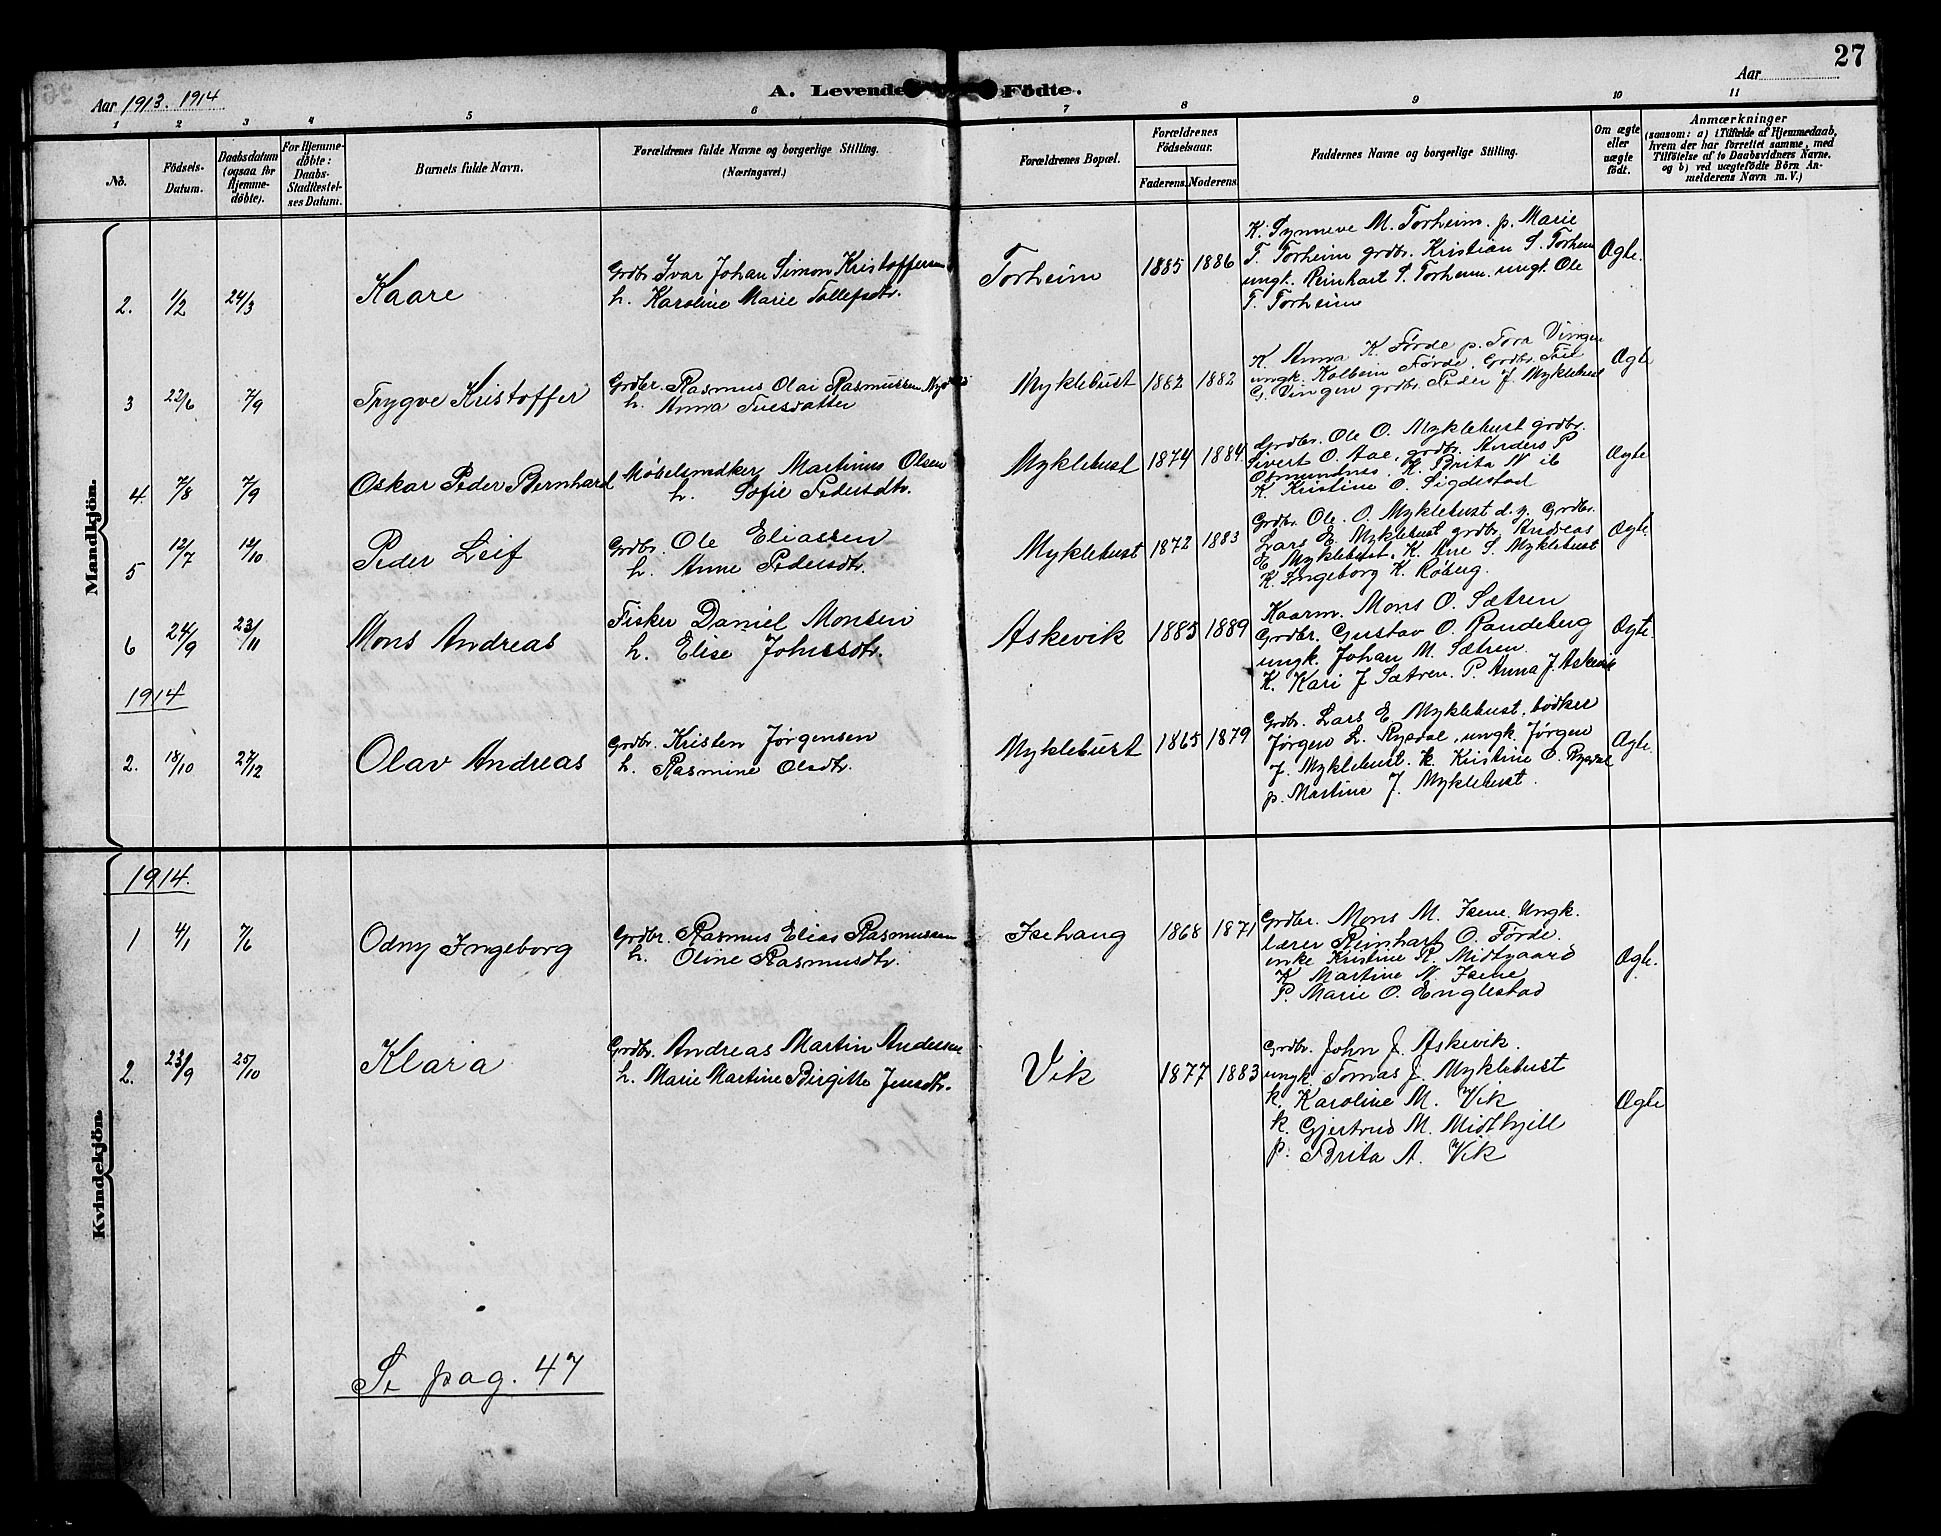 27
Aar 1913. 1914
A. Levende Fødte.
Aar
1 2 3 4 5 6 7 8 9 10 11
No.
Fødsels-Datum.
Daabsdatum (ogsaa for Hjemme-døbte).
For Hjemme-døbte: Daabs-Stadfestel-ses Datum.
Barnets fulde Navn.
Forældrenes fulde Navne og borgerlige Stilling.
(Næringsvei.)
Forældrenes Bopæl.
Forældrenes Fødselsaar.
Faderens. Moderens.
Faddernes Navne og borgerlige Stilling.
Om ægte eller uægte født.
Anmærkninger
(saasom: a) i Tilfælde af Hjemmedaab, hvem der har forrettet samme, med Tilføielse af to Daabsvidners Navne, og b) ved uægtefødte Børn An-melderens Navn m. V.)
Mandkjön.
2. 1/2 24/3 Kaare
Grdbr Ivar Johan Simon Kristoffersen
h. Karoline Marie Tollefsdtr.
Torheim 1885 1886
K. Synneve M. Torheim. p. Marie
T. Torheim grdbr. Kristian S. Torheim
ungk. Reinhart S. Torheim. ungk. Ole
T. Torheim
Ægte.
3 22/6 7/9 Trygve Kristoffer
Grdbr. Rasmus Olai Rasmussen
h. Anna Tuesdatter
Myklebust 1882 1882
K. Anna K. Førde p. Tora Vingen
ungk. Kolbein Førde, Grdbr. Tue
G. Vingen grdbr. Peder J. Myklebust
Ægte
4. 7/8 7/9 Oskar Peder Bernhard
Møbelsnedker Martinus Olsen
h. Sofie Pedersdtr.
Myklebust 1874 1884
Grdbr. Ole O. Myklebust grdbr.
Sivert O. Aae, grdbr. Anders P
K. Brita N. ib
K Kristine O. Sigdestad
Ægte
5 12/7 12/10 Peder Leif
Grdbr. Ole Eliassen
h. Anne Pedersdtr.
Myklebust 1872 1883
Grdbr. Ole O. Myklebust d.y. Grdbr.
Lars E. Myklebust grdbr. Andreas
E. Myklebust. K. Ane S. Myklebust
K. Ingeborg K. Røberg.
Ægte.
6 24/9 23/11 Mons Andreas
Fisker Daniel Monsen
h. Elise Johnsdtr.
Askevik 1885 1889
Kaarm. Mons O. Sætren
Grdbr. Gustav O. Randeberg
ungk. Johan M. Sætren.
K. Kari J Sætren. P. Anna J. Askevik
Ægte.
1914
2. 18/10 27/12 Olav Andreas
Grdbr. Kristen Jørgensen
h. Rasmine Olsdtr.
Myklebust 1865 1879
Grdbr. Lars E. Myklebust, bødker
Jørgen L. Rysdal, ungk. Jørgen
J. Myklebust. k. Kristine O. Rysdal
p. Martine J. Myklebust.
Ægte.
Kvindekjön.
1914.
1 4/1 7/6 Odny Ingeborg
Grdbr. Rasmus Elias Rasmussen
h. Oline Rasmusdtr.
Isehaug 1868 1871
Grdbr. Mons M. Isene. Ungk.
lærer Reinhart O. Førde.
enke Kristine R. Midtgaard
K Martine N. Isene
P. Marie O. Englestad
Ægte.
2. 23/9 25/10 Klara
Grdbr. Andreas Martin Andersen
h. Marie Martine Birgitte Jensdtr.
Vik 1877 1883
Grdbr. John J. Askevik.
ungk. Tomas J. Myklebust
k. Karoline M. Vik
k. Gjertrud M. Midthjell
p. Brita A. Vik
Ægte
Se pag. 47